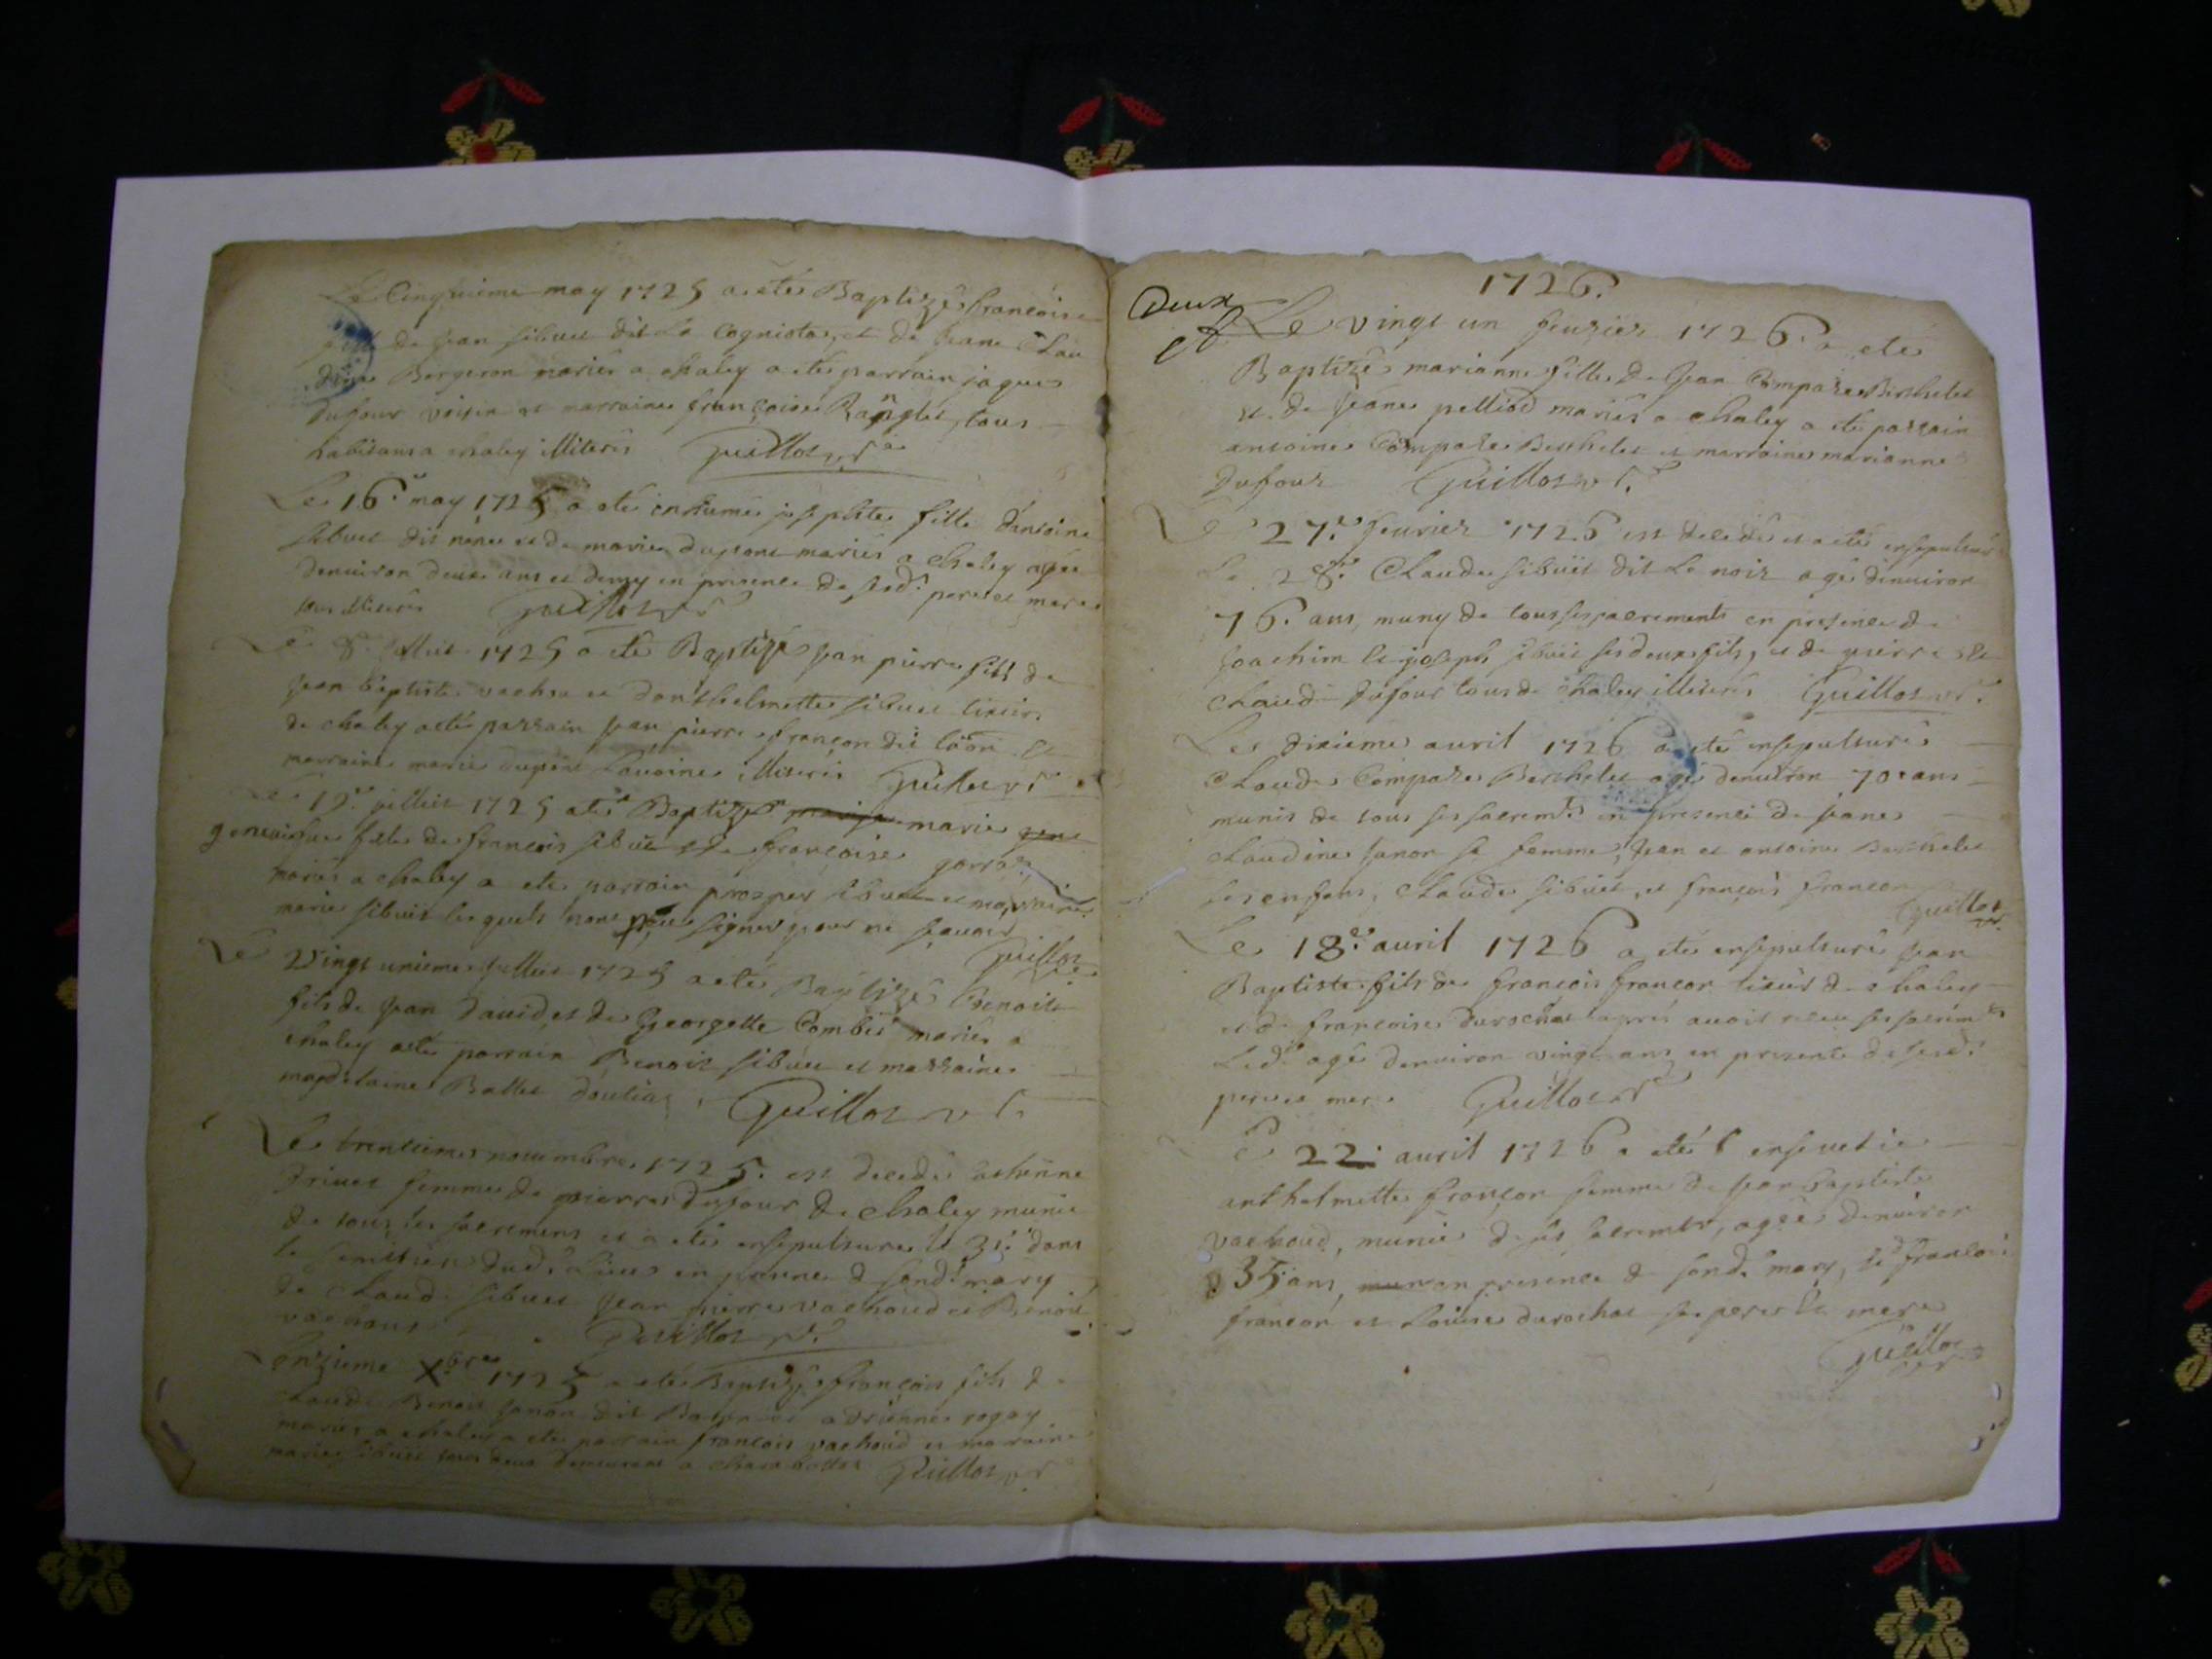 Le Cinquieme may 1725 a eté Baptizé françois
fils de jean sibuet dit La Cogniota, et de jeane Clau
dine Bergeron mariés a chaley a eté parrain jaques
Dufour voisin et marraine françoise Ranglet, tous
habitans a chaley illiterés Guillot
Le 16.e may 1725 a eté inhumée josephte fille d'antoine
sibuet dit néné et de marie dupont mariés a chaley agée
denuiron deux ans et demy en presence de sesd. pere et mere
tous illiterés Guillot
Le 8.e juillet 1725 a eté Baptizé jean pierre fils de
jean baptiste vachou et d'anthelmette sibuet tixier
de chaley a eté parrain jean pierre françon dit et
marraine marie dupont illiterés Guillot
Le 19.e juillet 1725 a eté Baptizé marie
geneuiesue fille de françois sibuet et de françoise
mariés a chaley a eté parrain prosper sibuet et marraine
marie sibuet lesquels n'ont signer pour ne sçauoir
Guillot
Le Vingt unieme juillet 1725 a eté Baptizé Benoit
fils de jean Dauid et de Georgette Combet mariés a
chaley a eté parrain Benoit sibuet et marraine
magdelaine Ballet Guillot
Le trentieme nouembre 1725. est decedée
Driuet femme de pierre dufour de chaley munie
de tous les sacremens et a eté ensepulturée le 31.e dans
le semitier dud. Lieu en presence de sond. mary
de Claude sibuet jean pierre vachoud et Benoit
vachoud Guillot
onzieme Xbre 1725 a eté Baptizé françois fils de
Claude Benoit janon dit et adrienne rogay
mariés a chaley a eté parrain françois vachoud et marraine
marie sibuet tous deux a Guillot
1726.
Deux
Le vingt un feurier 1726. a eté
Baptizé marianne fille de jean Compare Berthelet
et de jeane pelliod mariés a chaley a eté parrain
antoine Compare Berthelet et marraine marianne
Dufour Guillot
Le 27.e feurier 1726 est decedé et a eté ensepulturé
Le 28.e Claude sibuet dit Le noir agé denuiron
76. ans, muny de tous ses sacrements en presence de
joachim et joseph sibuet ses deux fils, et de pierre et
claude dufour tous de chaley illiterés Guillot
Le dixieme auril 1726 a eté ensepulturé
Claude Compare Berthelet agé denuiron 70. ans
munis de tous ses sacremts en presence de jeane
claudine janon sa femme, jean et antoine Berthelet
ses enfans, Claude sibuet, et françois françon
Guillot
Le 18.e auril 1726 a eté ensepulturé jean
Baptiste fils de françois françon tixier de chaley
et de françoise durochat apres auoir receu ses sacremts
Led. agé denuiron vingt ans en presence de sesd.
pere et mere Guillot
Le 22. auril 1726 a eté enseuelie
anthelmette françon femme de jean baptiste
vachoud, munie de ses sacremts, agée denuiron
35 ans, en presence de sond. mary, de françois
françon et Louise durochat ses pere et mere
Guillot